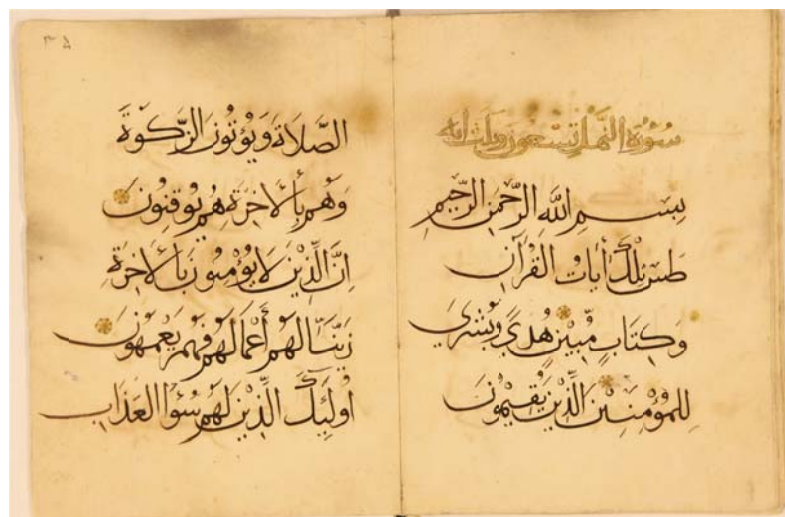 سورة النمل تسعون وثلث ايه
بِسْمِ اللهِ الرَّحْمٰنِ الرَّحِيْمِ
طٰسٓ تِلْكَ أٰيَاتُ القُرْآنِ
وَكِتَابٍ مُّبِيْنٍ هُدًى وَبُشْرَي
لِلمُؤْمِنِيْنَ الَّذِيْنَ يُقِيْمُوْنَ
الصَّلاَةَ وَيُؤْتُوْنَ الزَّكٰوةَ
وَهُمْ بِالْاٰخِرَةِ هُمْ يُوْقِنُوْنَ
اِنَّ الَّذِيْنَ لَا يُؤْمِنُوْنَ بِالْاٰخِرَةِ
زَيَّنَّا لَهُمْ أَعْمَالَهُمْ فَهُمْ يَعْمَهُوْنَ
اُوْلٰئِكَ الَّذِيْنَ لَهُمْ سُوْٓءُ العَذَابِ